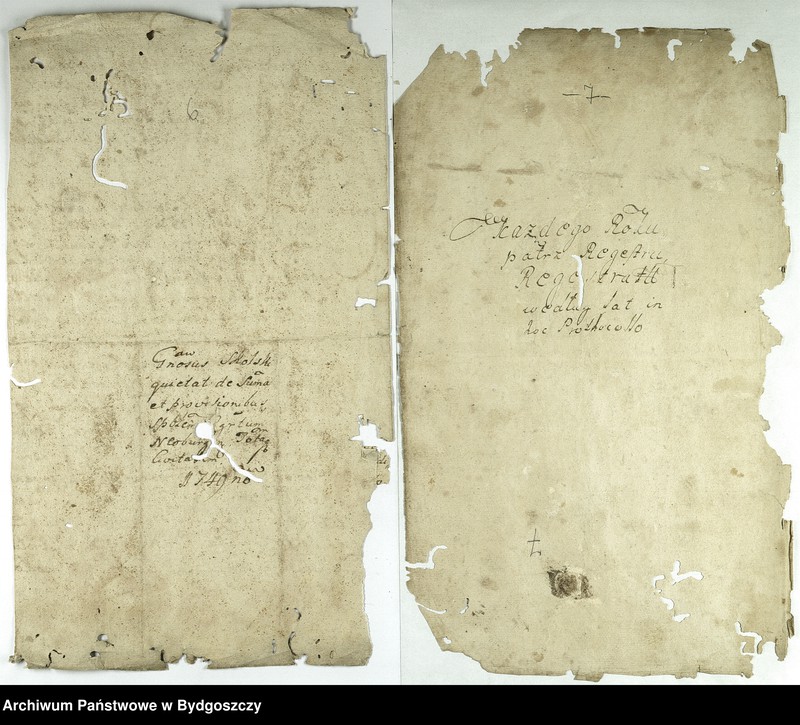 6
Gnosus Skolski
quietat de Suma
et provisionibus
Neoburgen
Civitatem
1749no
-7-
Każdego Roku
patrz Regestru
Regestratu
wedłuy lat in
hoc Prothocollo
7
Archiwum Państwowe w Bydgoszczy